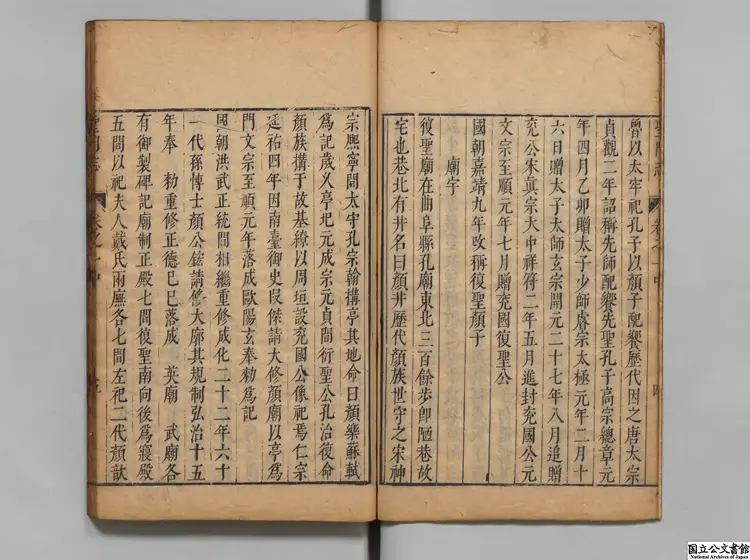 曾以太牢祀孔子以顏子配饗歷代因之唐太宗
貞觀二年詔稱先師配饗先聖孔子高宗總章元
年四月乙卯贈太子少師睿宗太極元年二月十
六日贈太子太師玄宗開元二十七年八月追贈
兖公宋真宗大中祥符二年五月進封兖國公元
文宗至順元年七月贈兖國復聖公
國朝嘉靖九年改稱復聖顏子
廟宇
復聖廟在曲阜縣孔廟東北三百餘步卽陋巷故
宅也巷北有井名曰顏井歷代顏族世守之宋神
宗熙寧間太守孔宗翰搆亭其地命曰顏樂蘇軾
爲記歲乂亭圯元成宗元貞間衍聖公孔治復命
顏族搆于故基繚以周垣設兖國公像祀焉仁宗
延祐四年因南臺御史段傑請大修顏廟以亭爲
門文宗至順元年落成歐陽玄奉勑爲記
國朝洪武正統間相繼重修成化二十二年六十
一代孫博士顏公鋐請修大廓其規制弘治十五
年奉 勑重修正德巳巳落成 英廟 武廟各
有御製碑記廟制正殿七間復聖南向後爲寢殿
五間以祀夫人戴氏兩廡各七間左祀二代顏歆
国立公文書館
National Archives of Japan